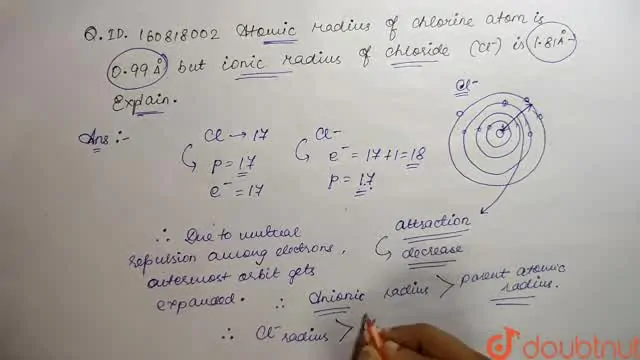 Q.ID. 160818002 Atomic radius of chlorine atom is
0.99 Å but ionic radius of chloride (Cl⁻) is 1.81Å
Explain.
Ans :-
Cl → 17
p = 17
e⁻ = 17
Cl⁻
e⁻ = 17+1 = 18
p = 17
Cl⁻
attraction
decrease
∴ Due to mutual
repulsion among electrons,
outermost orbit gets
expanded.
∴ Anionic radius > parent atomic
radius.
∴ Cl⁻ radius >
doubtnut